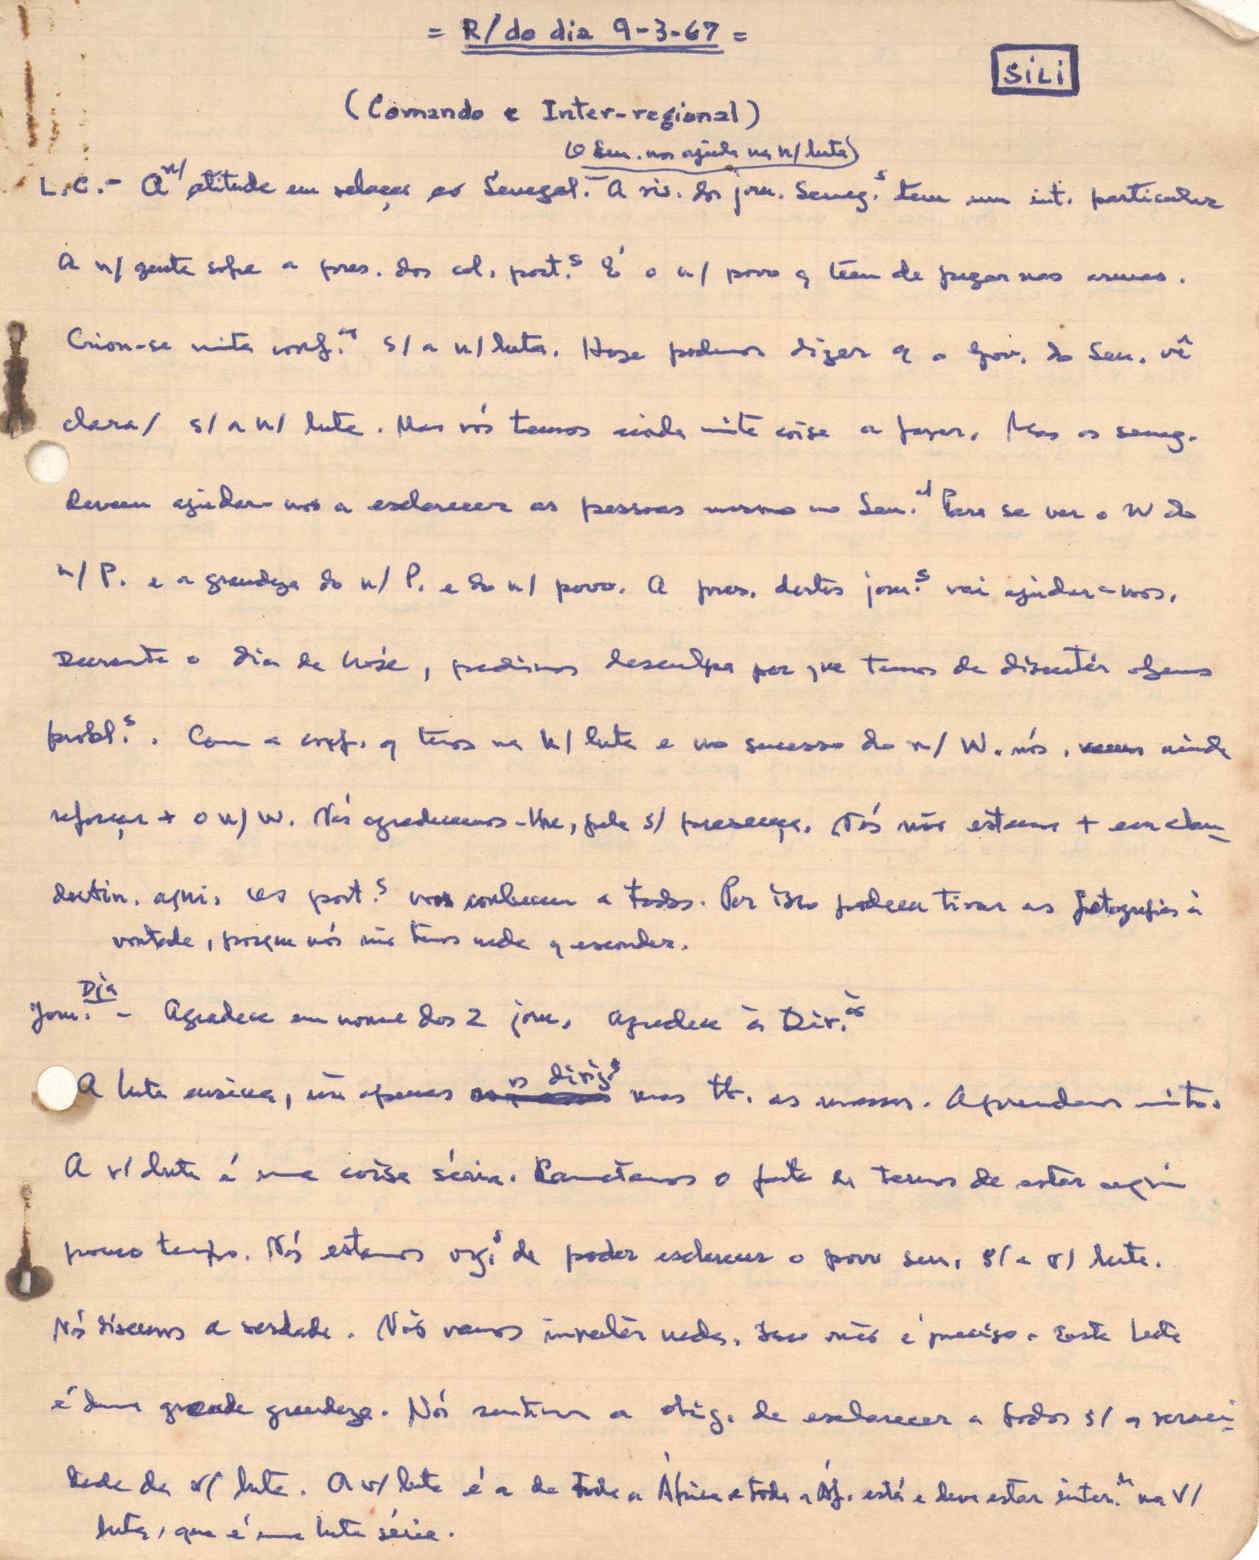 = R/ do dia 9-3-67 =
SiLi
(Comando e Inter-regional)
(O Sen. nos ajuda na n/ luta)
L.C. - A n/ atitude em relaçao ao Senegal. - A vis. dos jorn. Seneg.s tem um int. particular
A n/ gente sofre a pres. dos col. port.s É o n/ povo q têm de pegar nas armas.
Criou-se mita conf.ão s/ a n/ luta. Hoje podemos dizer q o Gov. do Sen. vê
clara/ s/ a n/ luta. Mas nós temos ainda mita coisa a fazer. Mas os seneg.
devem ajudar-nos a esclarecer as pessoas mesmo no Sen.al Para se ver o W do
n/ P. e a grandeza do n/ P. e do n/ povo. A pres. destes jorn.s vai ajudar-nos.
Durante o dia de hoje, pedimos desculpa por que temos de discutir alguns
probl.s. Com a conf. q temos na n/ luta e no sucesso do n/ W. nós, vamos ainda
reforçar + o n/ W. Nós agradecemos-lhe, pela s/ presença. Nós não estamos + em clan-
destin. aqui. Os port.s nos conhecem a todos. Por isso podem tirar as fotografias à
vontade, porque nós não temos nada q esconder.
Jorn. Dja - Agradece em nome dos 2 jorn. agradece à Dir.ão
A luta ensina, não apenas os dirig.s mas tb. as massas. Aprendemos mito.
A v/ luta é uma coisa séria. Lamentamos o facto de termos de estar aqui
pouco tempo. Nós estamos org.s de poder esclarecer o povo sen. s/ a v/ luta.
Nós dissemos a verdade. Não vamos inventar nada. Isso não é preciso. Esta luta
é duma grande grandeza. Nós sentimos a obrig. de esclarecer a todos s/ a veraci-
dade da v/ luta. A v/ luta é a de toda a África e toda a Áf. está e deve estar inter.da na V/
luta, que é uma luta séria.